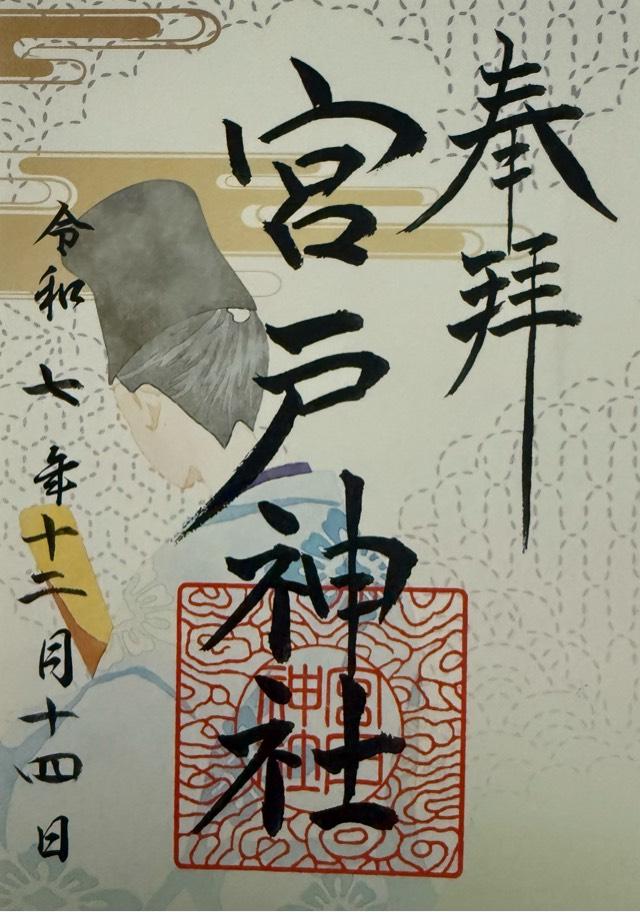 奉拝
宮戸神社
宮戸
神社
令和七年十二月十四日